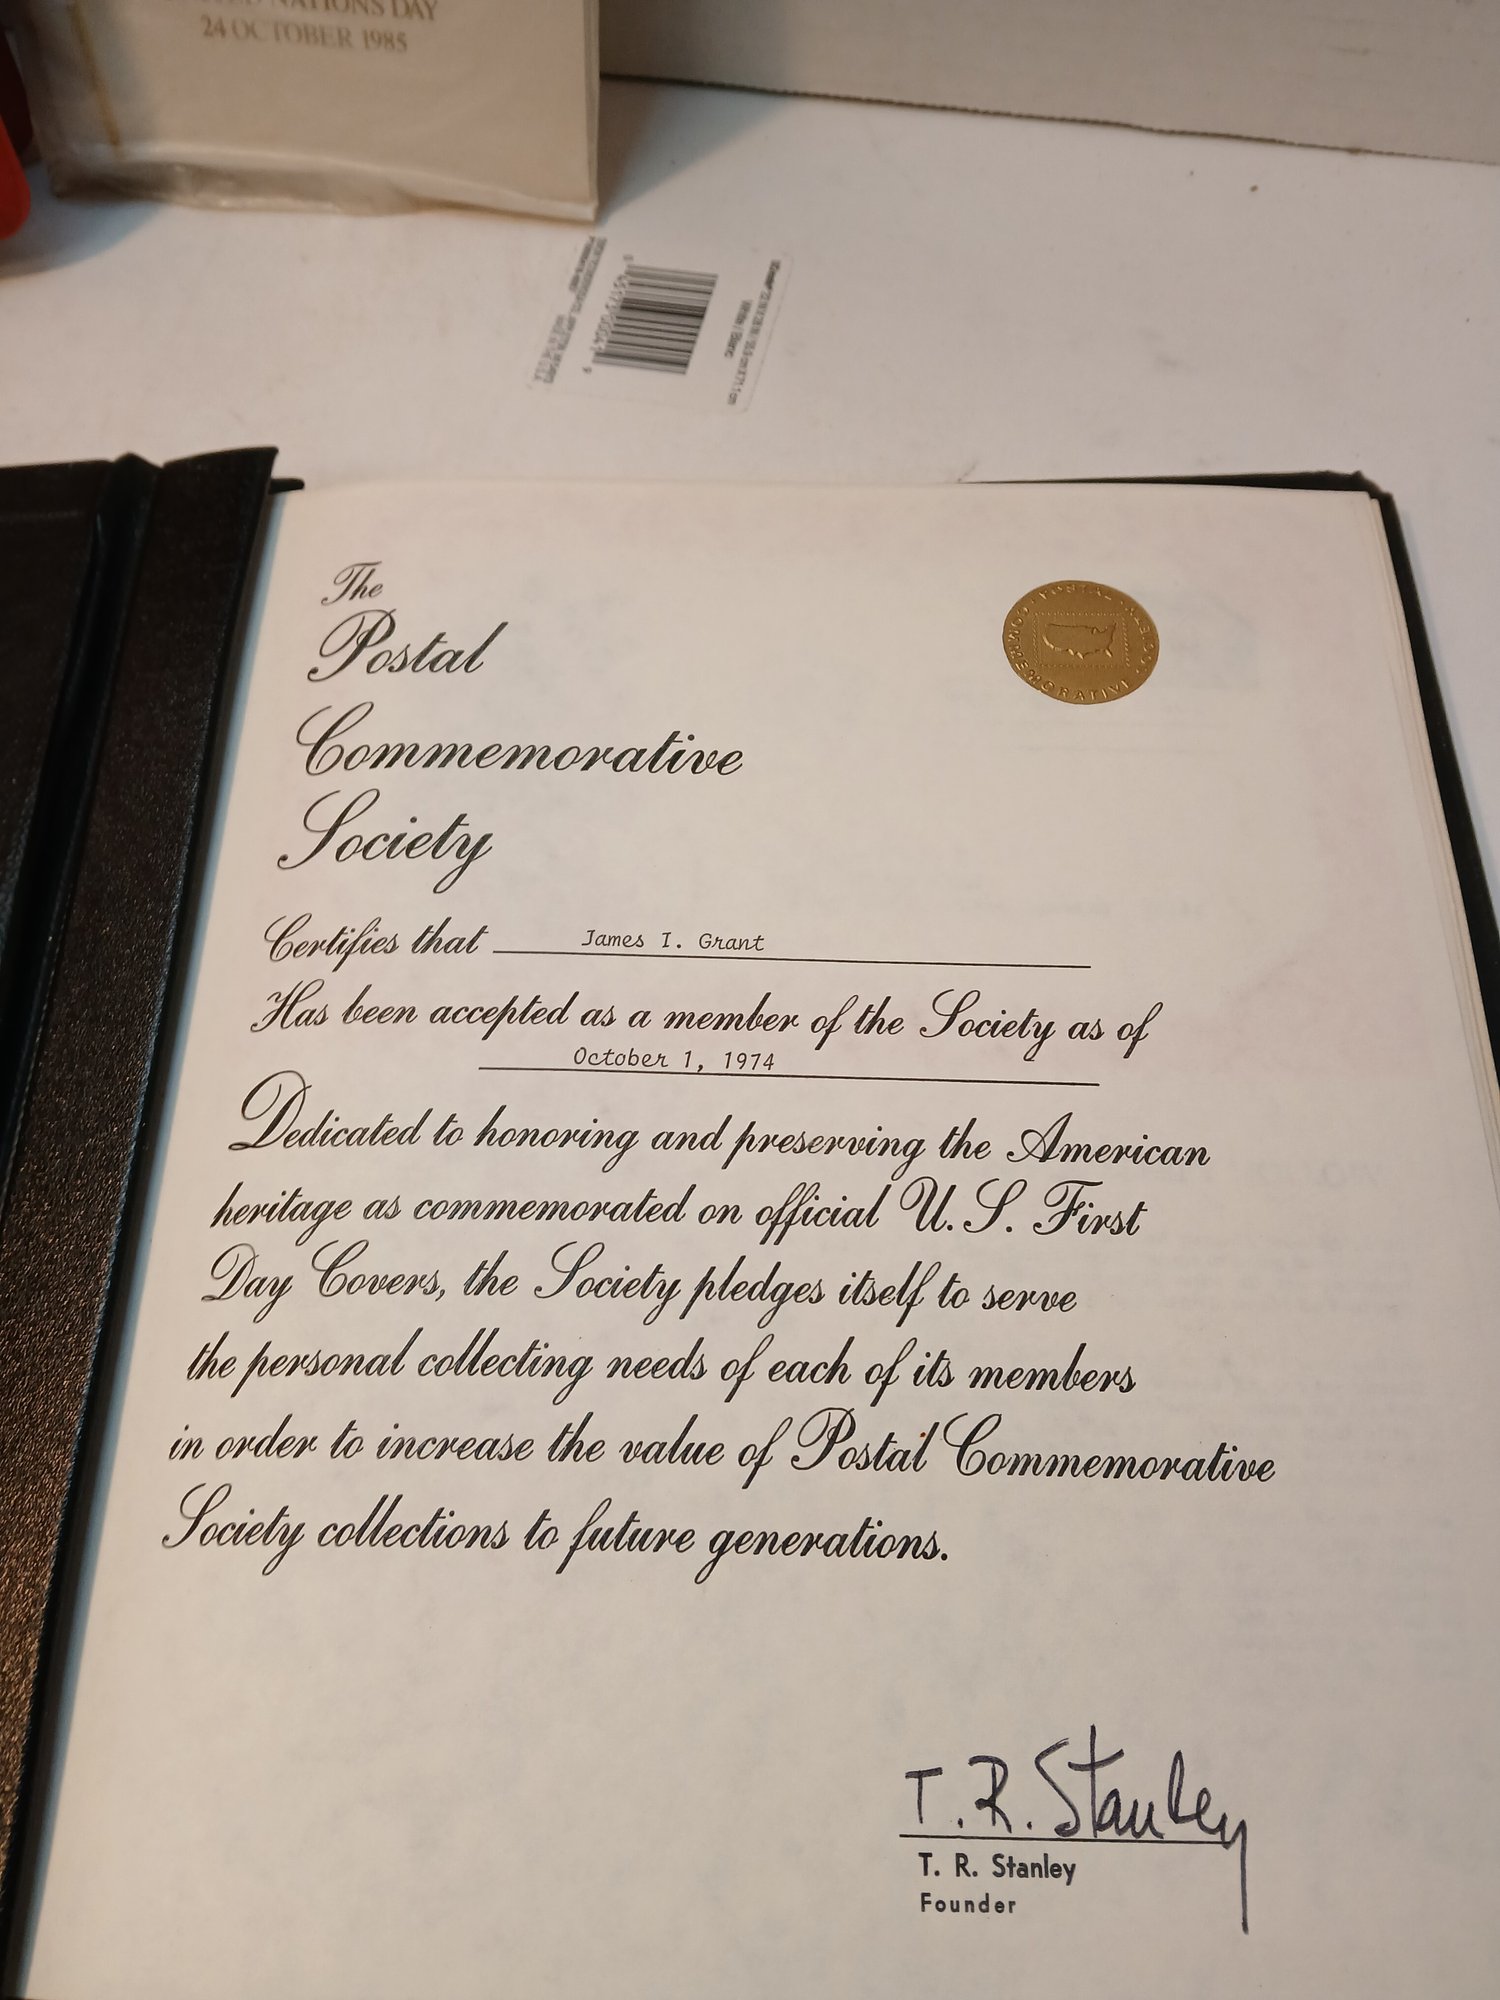 NATIONS DAY
24 OCTOBER 1985
The
Postal
Commemorative
Society
POSTAL COMMEMORATIVE SOCIETY
Certifies that James I. Grant
Has been accepted as a member of the Society as of
October 1, 1974
Dedicated to honoring and preserving the American
heritage as commemorated on official U.S. First
Day Covers, the Society pledges itself to serve
the personal collecting needs of each of its members
in order to increase the value of Postal Commemorative
Society collections to future generations.
T. R. Stanley
T. R. Stanley
Founder